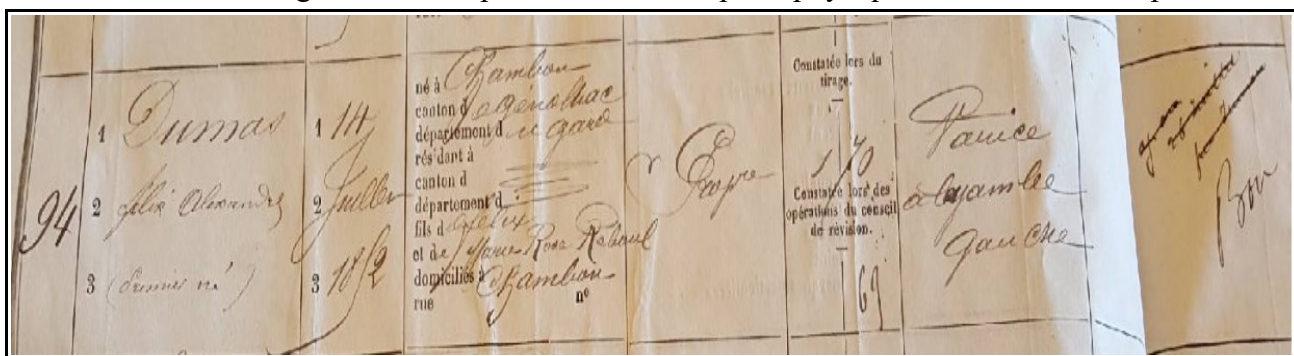 94
1 Dumas
2 félix Alexandre
3 (dernier né)
1 14
2 Juillet
3 1852
né à Chambon
canton d e génolhac
département d u gard
résidant à
canton d
département d
fils d e félix
et de Marie Rose Reboul
domiciliés à Chambon
rue n°
Propre
Constatée lors du
tirage.
1 70
Constatée lors des
opérations du conseil
de révision.
1 69
Varice
à la jambe
gauche
Bon